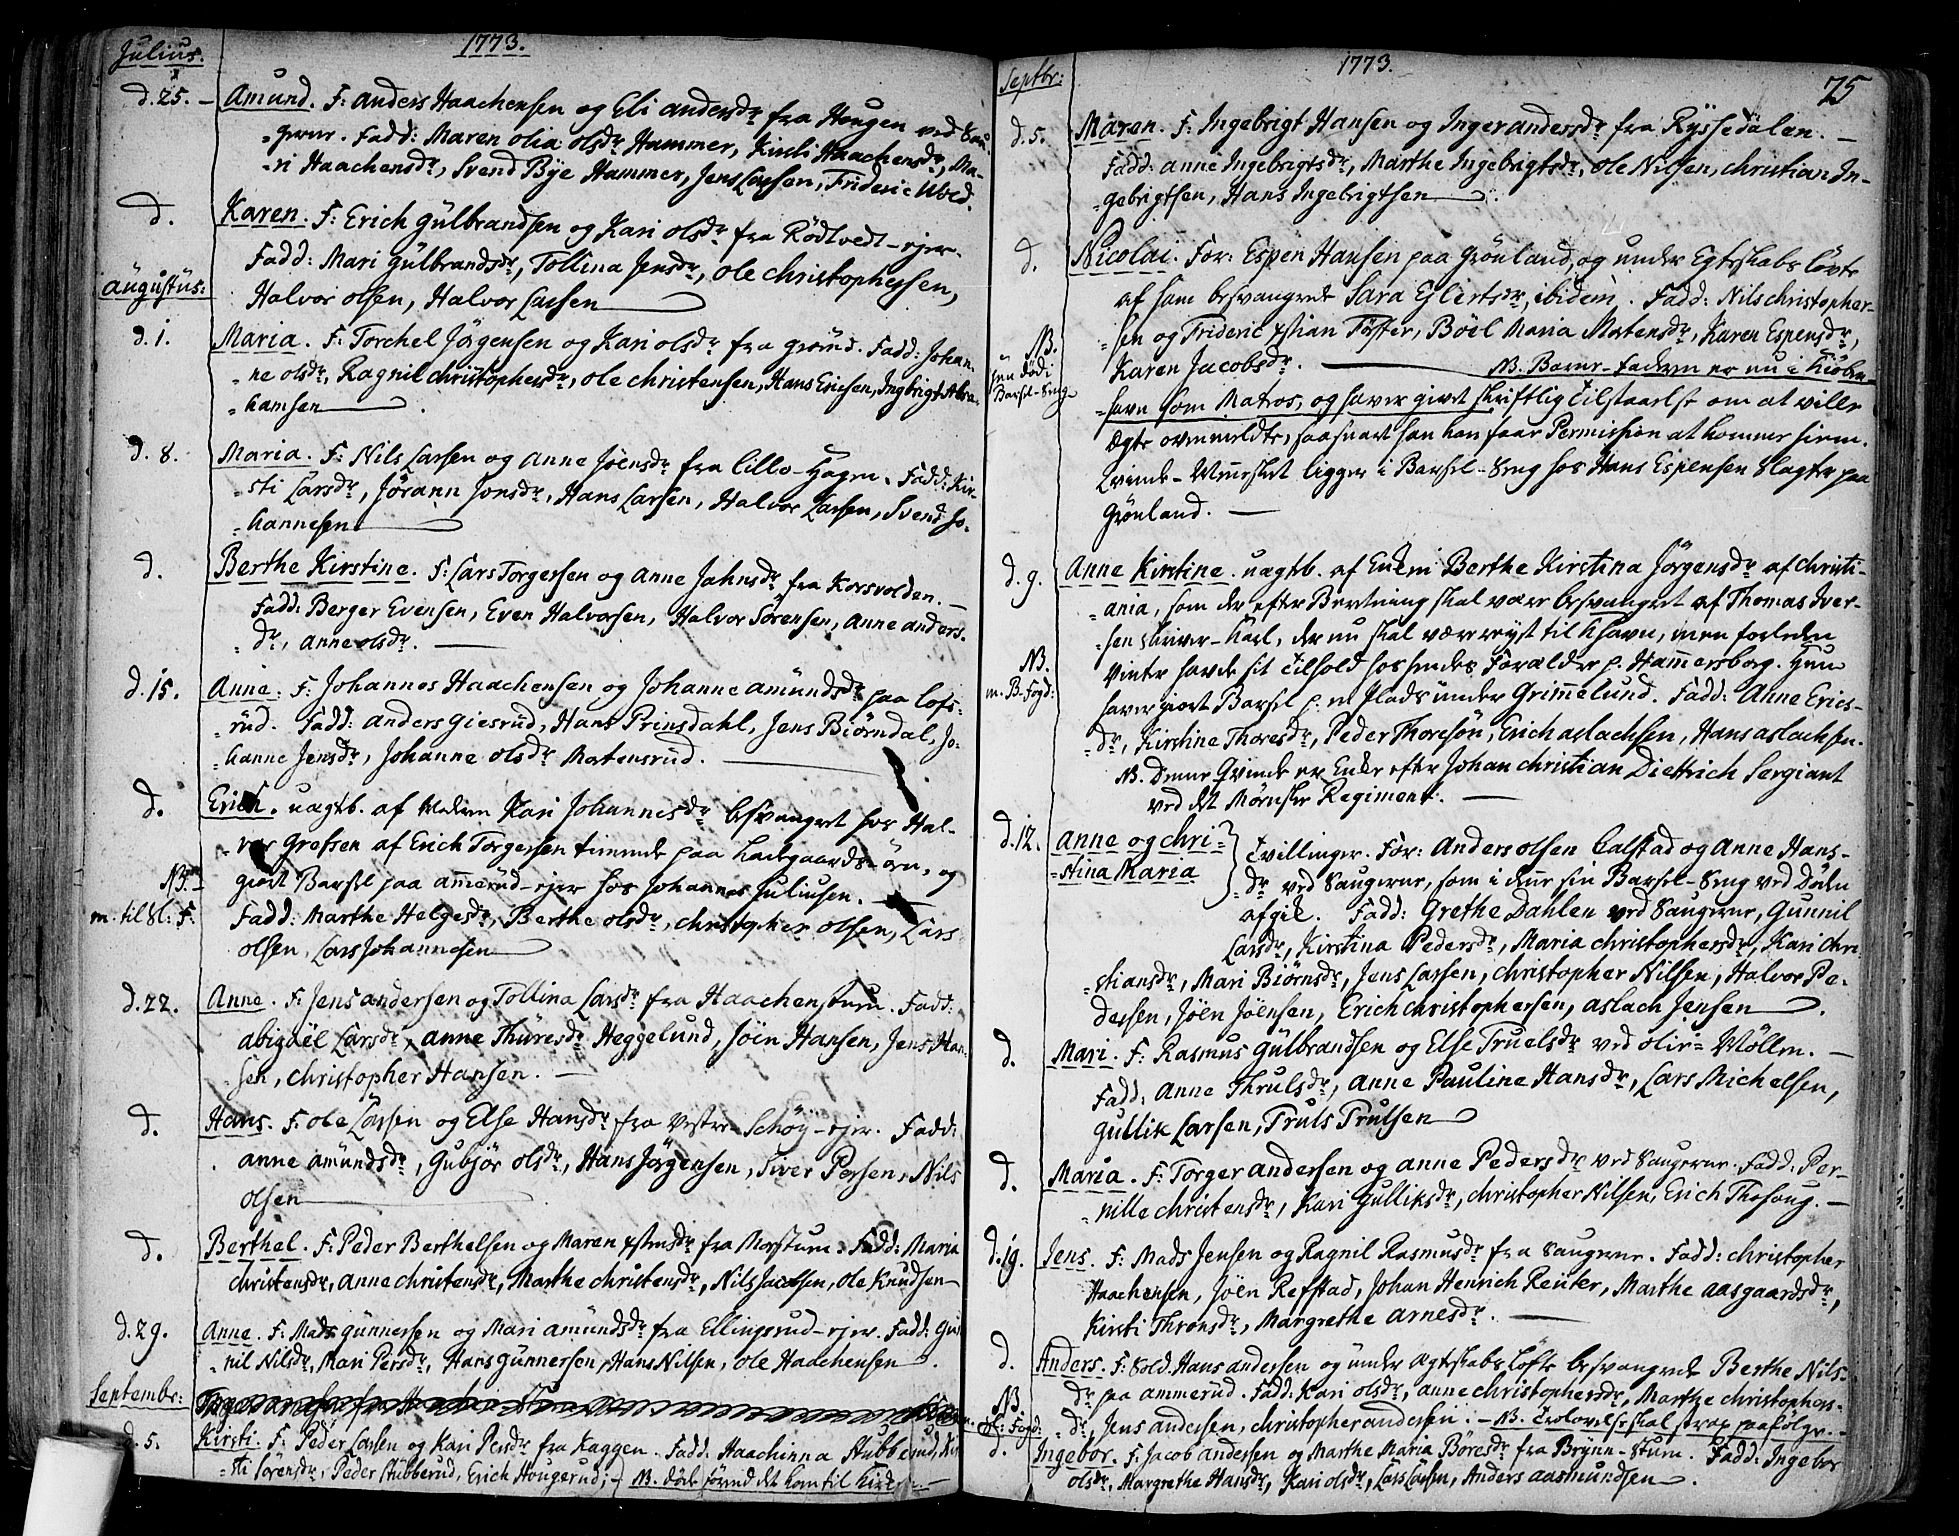 Julius. 1773.
d. 25. - Amund. F: Anders Haachensen og Eli Andersdr fra Hougen ved Sau-
=gerne. Fadd: Maren Olia Olsdr Hammer, Kirsti Haachensdr, Ma-
=ri Haachensdr, Svend Bÿe Hammer, Jens Larsen, Frideric Wed.
d. Karen. F: Erich Gülbrandsen og Kari Olsdr fra Rödtvedt-ejer.
Fadd: Mari Gülbrandsdr, Tollina Jensdr, Ole Christophersen,
Halvor Olsen, Halvor Larsen
Augustus:
d. 1. Maria. F: Torchel Jörgensen og Kari Olsdr fra Grorud. Fadd: Johan-
=ne Olsdr, Ragnil Christophersdr, Ole Christensen, Hans Ericsen, Ingbrigt Abra-
=hamsen
d. 8. Maria. F: Nils Larsen og Anne Jöensdr fra Lille-Hagen. Fadd: Kir-
=sti Larsdr, Jörann Jonsdr, Hans Larsen, Halvor Larsen, Svend Jo-
=hannesen
d. Berthe Kirstine. F: Lars Torgersen og Anne Jahnsdr fra Korsvolden. -
Fadd: Berger Evensen, Even Halvorsen, Halvor Sörensen, Anne Anders-
=dr, Anne Olsdr.
d. 15. Anne: F: Johannes Haachensen og Johanne Amündsdr paa Lofs-
=rüd. Fadd: Anders Giesrud, Hans Prinsdahl, Jens Biörndal, Jo-
=hanne Jensdr, Johanne Olsdr Mortensrüd.
d. Erich. uægtb. af Moderen Kari Johannesdr besvangret hos Hal-
=vor Grefsen af Erich Torgersen tienende paa Ladegaards-öen, og
NB. giort Barsel paa Ammerüd-ejer hos Johannes Juliusen.
m. til Sl: F. Fadd: Marthe Helgesdr, Berthe Olsdr, Christopher Olsen, Lars
Olsen, Lars Johannesen
d. 22. Anne. F: Jens Andersen og Tollina Larsdr fra Haachenstuen. Fadd:
Abigäel Larsdr, Anne Thüresdr Heggelund, Jöen Hansen, Jens Han-
=sen, Christopher Hansen. -
d. Hans. F: Ole Larsen og Else Hansdr fra Vestre Schöÿ-ejer. Fadd:
Anne Amündsdr, Gubjör Olsdr, Hans Jörgensen, Siver Persen, Nils
Olsen
d. Berthel. F: Peder Berthelsen og Maren xstensdr fra Norstuen. Fadd: Maria
Christensdr, Anne Christensdr, Marthe Christensdr, Nils Jacobsen, Ole Knudsen
d. 29. Anne. F: Mads Günnersen og Mari Amündsdr fra Ellingsrud-ejer. Fadd: Gu-
=nil Nilsdr, Mari Persdr, Hans Günnersen, Hans Nilsen, Ole Haachensen.
Septembr:
d. 5. Kirsti. F: Peder Larsen og Kari Persdr fra Kaggen. Fadd: Haachinna Stubberud, Kir-
=sti Sörensdr, Peder Stübberud, Erich Hougerud; - NB. döde förend det kom til Kirke
Septbr: 1773. 75
d. 5. Maren. F: Ingebrigt Hansen og Inger Andersdr fra Ryssedalen. -
Fadd: Anne Ingebrigtsdr, Marthe Ingebrigtsdr, Ole Nilsen, Christian In-
=gebrigtsen, Hans Ingebrigtsen
d. Nicolai. For: Espen Hansen paa Grönland, og under Egteskabs löfte
af ham besvangrede Sara Eglertsdr, ibidem. Fadd: Nils Christopher-
=sen og Frideric xstian Töfter, Böel Maria Mortensdr, Karen Espensdr,
NB. Karen Jacobsdr. NB. Barne-Faderen er nu i Kiöben-
hun död i
Barsel-Seng
=havn som Matros, og haver givet skriftlig tilstaaelse om at ville
Ægte ovenmeldte, saasnart han kan faae Permission at komme hiem.
Qvinde-Mennesket ligger i Barsel-Seng hos Hans Espensen Slagter paa
Grönland. -
d. 9. Anne Kirstine. uægtb. af Enken Berthe Kirstina Jörgensdr af Christi-
=ania, som der efter Beretning skal være besvangret af Thomas Iver-
=sen Skriver-Karl, der nu skal være reÿst til Khavn, men forleden
NB. Vinter havde sit tilhold hos hendes Forældre p. Hammersborg. Hun
m. B. Fogd: haver giort Barsel p. en Plads ünder Grimelund. Fadd: Anne Erics-
=dr, Kirstine Thoresdr, Peder Thoresön, Erich Aslachsen, Hans Aslachsen.
NB. Denne Qvinde er Enke efter Johan Christian Diettrich Sergiant
ved det Mörske Regiment. -
d. 12. Anne og Chri-
=stina Maria Tvillinger. For: Anders Olsen Calstad og Anne Hans-
=dr ved Saugerne, som i denne sin Barsel-Seng ved Döden
afgik. Fadd: Grethe Dahlen ved Saugerne, Gunnil
Larsdr, Kirstina Pedersdr, Maria Christophersdr, Kari Chri-
=stiansdr, Mari Biörnsdr, Jens Larsen, Christopher Nilsen, Halvor Pe-
dersen, Jöen Jöensen, Erich Christophersen, Aslach Jensen.
d. Mari. F: Rasmus Gülbrandsen og Else Truelsdr ved Olie-Möllen. -
Fadd: Anne Thrulsdr, Anne Pauline Hansdr, Lars Michelsen,
Gullik Larsen, Truls Trulsen
d. Maria. F: Torger Andersen og Anne Pedersdr ved Saugerne. Fadd: Per-
=nille Christensdr, Kari Gulliksdr, Christopher Nilsen, Erich Thosoug. -
d. 19. Jens. F: Mads Jensen og Ragnil Rasmusdr fra Saugerne. Fadd: Christopher
Haachensen, Jöen Refstad, Johan Henrich Reüter, Marthe Aasgaardsdr,
Kirsti Thronsdr, Margrethe Arnesdr.
d. Anders. F: Sold. Hans Andersen og ünder Ægteskabs Löfte besvangrede Berthe Nils-
NB. =dr paa Ammerud. Fadd: Kari Olsdr, Anne Christophersdr, Marthe Christophers-
=dr, Jens Andersen, Christopher Andersen. - NB. Trolovelse skal strax paafölge. -
d. Ingebor. F: Jacob Andersen og Marthe Maria Böresdr fra Brynn-Stuen. Fadd: Ingebor
Olsdr, Margrethe Hansdr, Kari Olsdr, Lars Larsen, Anders Aasmundsen.